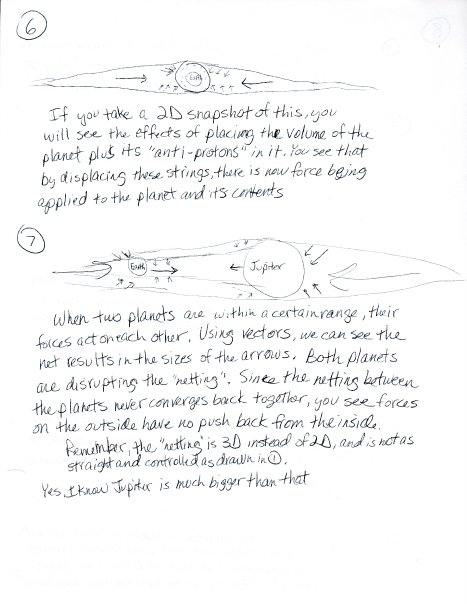 6
Earth
If you take a 2D snapshot of this, you
will see the effects of placing the volume of the
planet plus its "anti-protons" in it. You see that
by displacing these strings, there is now force being
applied to the planet and it's contents
7
Earth
Jupiter
When two planets are within a certain range, their
forces act on each other. Using vectors, we can see the
net results in the sizes of the arrows. Both planets
are disrupting the "netting". Since the netting between
the planets never converges back together, you see forces
on the outside have no push back from the inside.
Remember, the "netting" is 3D instead of 2D, and is not as
straight and controlled as drawn in ①.
Yes, I know Jupiter is much bigger than that